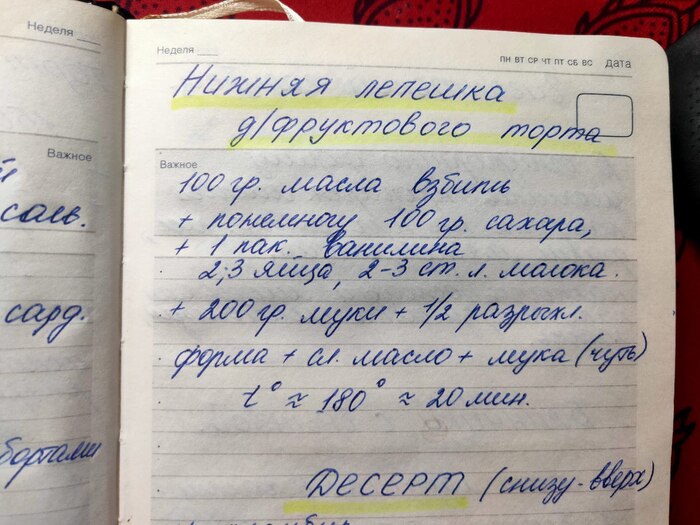 Неделя
Важное
салв.
сард.
бортами
Неделя
ПН ВТ СР ЧТ ПТ СБ ВС ДАТА
Нижняя лепешка
д/фруктового торта
Важное
100 гр. масла взбить
+ понемногу 100 гр. сахара,
+ 1 пак. ванилина
2;3 яйца, 2-3 ст. л. молока.
+ 200 гр. муки + 1/2 разрыхл.
форма + сл. масло + мука (чуть)
t° ≈ 180° ≈ 20 мин.
Десерт (снизу-вверх)